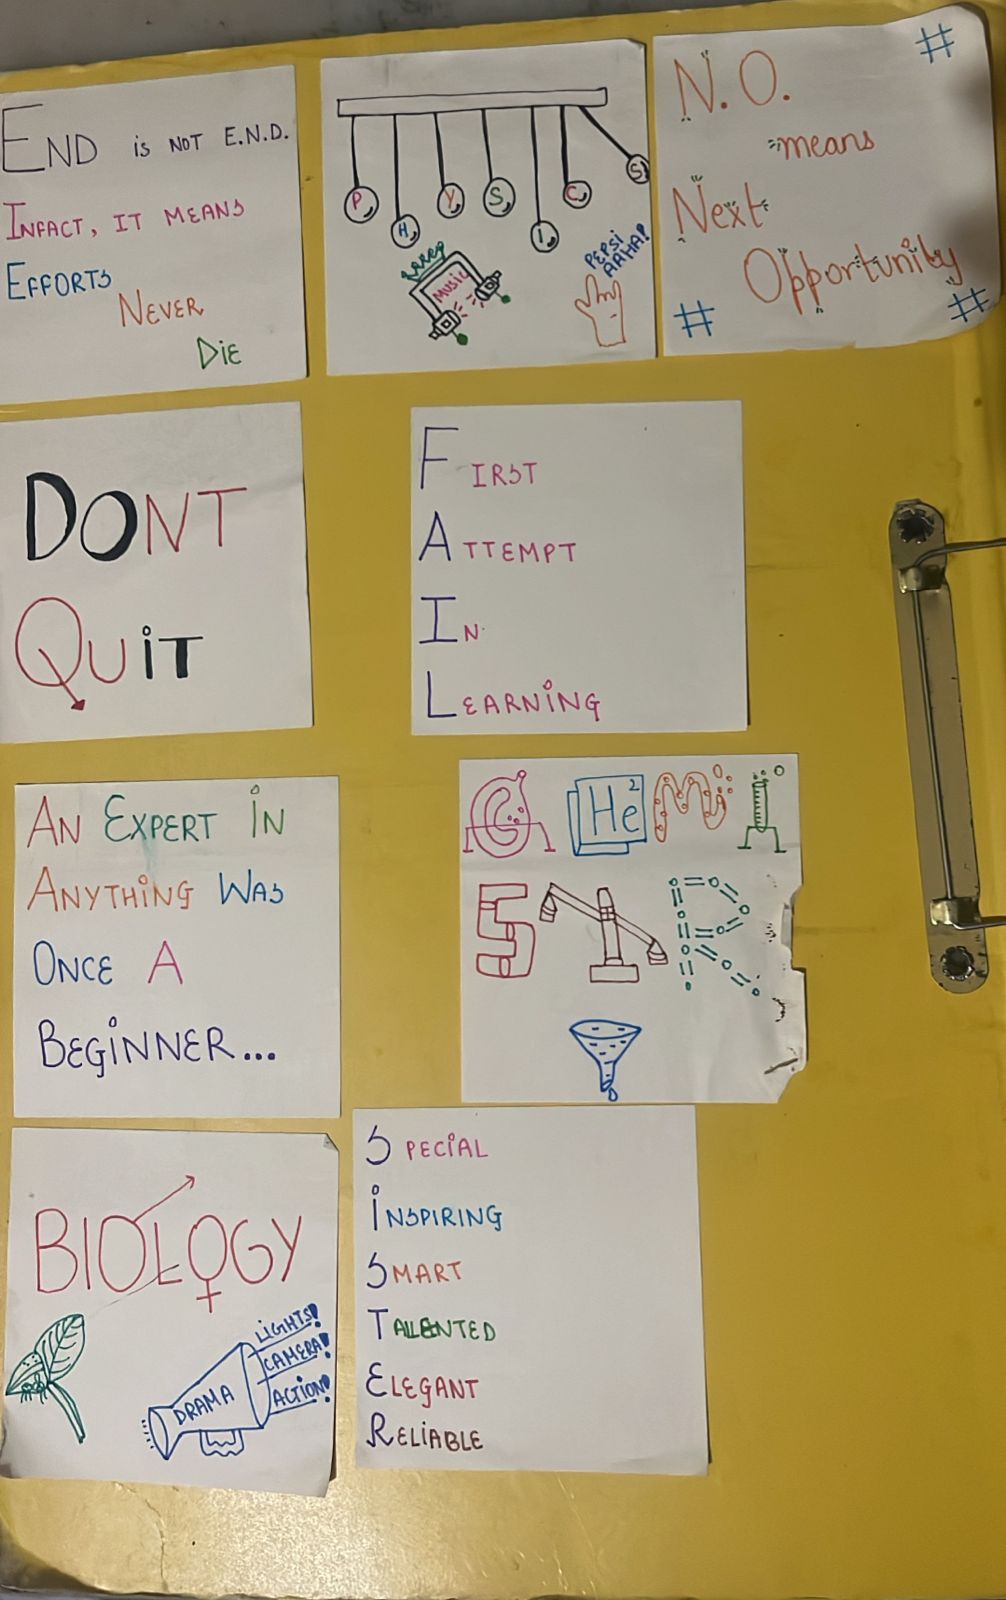 END is NOT E.N.D.
INFACT, IT MEANS
EFFORTS
NEVER
DiE
P H Y S I C S
Keep
Music
PEPSI
AAHA!
#
N.O.
means
Next
Opportunity
# #
DONT
QUiT
FIRST
ATTEMPT
IN
LEARNiNG
AN EXPERT iN
ANYTHiNG WAS
ONCE A
BEGiNNER...
C He2 Mi i
S T R
BIOLOGY
LiGHTS!
CAMERA!
ACTiON!
DRAMA
SPECiAL
iNSPIRING
SMART
TALENTED
ELEGANT
RELiABLE